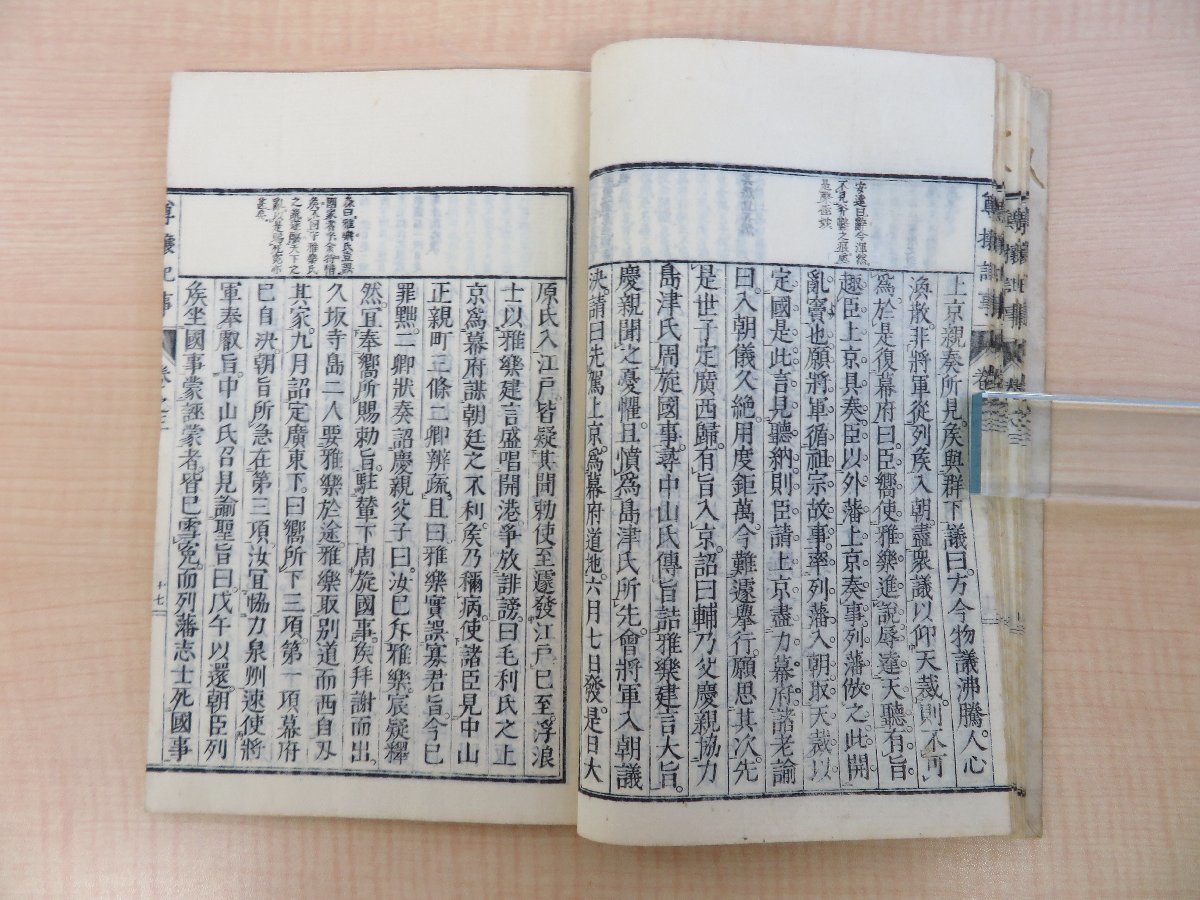 安達曰辭令渾然
不見斧鑿之痕處
上京親奏所見矦與群下議曰方今物議沸騰人心
渙散非將軍從列矦入朝盡衆議以仰天裁則不可
爲於是復幕府曰臣嚮使雅樂進說辱達天聽有旨
趣臣上京具奏臣以外藩上京奏事列藩倣之此開
亂竇也願將軍循祖宗故事率列藩入朝取天裁以
定國是此言見聽納則臣請上京盡力幕府諸老諭
曰入朝儀久絶用度鉅萬今難遽擧行願思其次先
是世子定廣西歸有旨入京詔曰輔乃父慶親協力
島津氏周旋國事尋中山氏傳旨詰雅樂建言大旨
慶親聞之憂懼且憤爲島津氏所先會將軍入朝議
決請曰先駕上京爲幕府道地六月七日發是日大
尊攘紀事
原氏入江戸皆疑其聞勅使至遽發江戸已至浮浪
士以雅樂建言盛唱開港爭放誹謗曰毛利氏之上
京爲幕府謀朝廷之不利矦乃稱病使諸臣見中山
正親町三條二卿辨疏且曰雅樂實誤寡君旨今已
罪黜二卿狀奏詔慶親父子曰汝已斥雅樂宸疑釋
然宜奉嚮所賜勅旨駐輦下周旋國事矦拜謝而出
久坂寺島二人要雅樂於途雅樂取別道而西自刄
其家九月詔定廣東下曰嚮所下三項第一項幕府
已自決朝旨所急在第三項汝宜恊力泉州速使將
軍奉敕旨中山氏召見諭聖旨曰戊午以還朝臣列
矦坐國事蒙誣蒙者皆已雪冤而列藩志士死國事
尊攘紀事
卷之三
十七